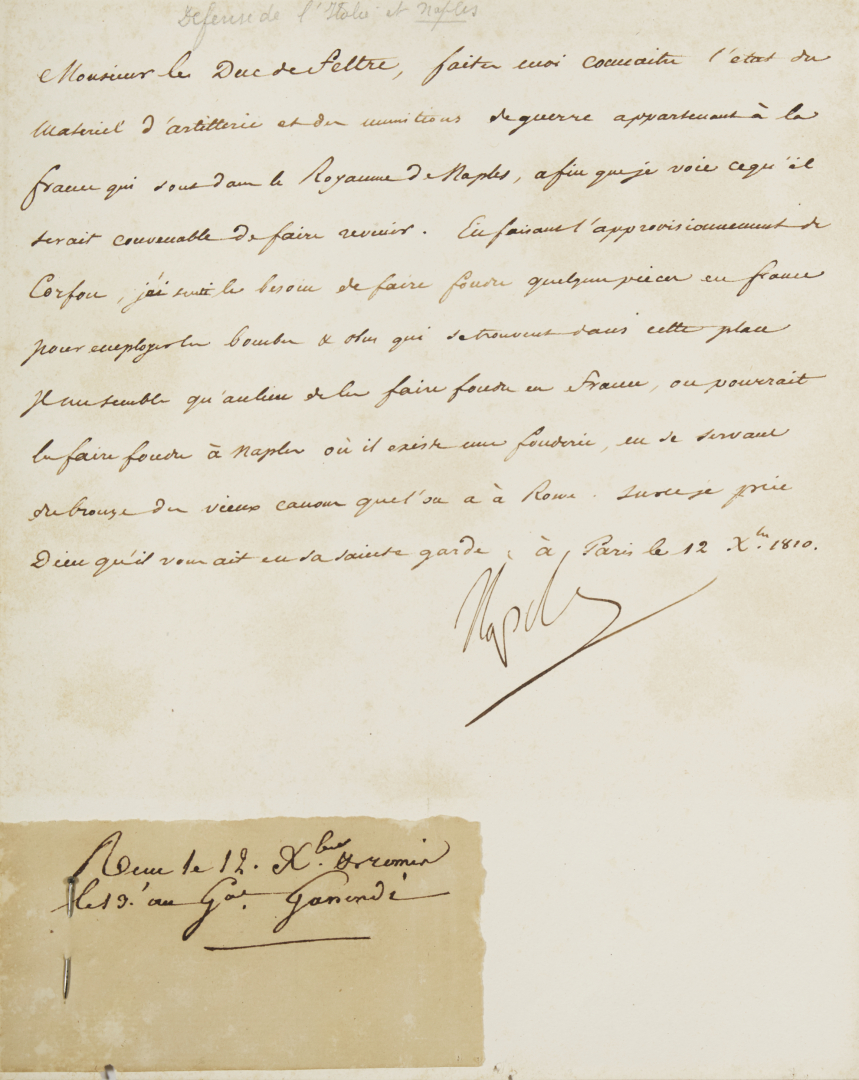 Défense de l'Italie et Naples
Monsieur le Duc de Feltre, faites moi connaitre l'état du
Materiel d'artillerie et des munitions de guerre appartenant à la
france qui sont dans le Royaume de Naples, afin que je voie ce qu'il
serait convenable de faire revenir. En faisant l'approvisionnement de
Corfou, j'ai senti le besoin de faire fondre quelques pièces en france
pour employer les bombes & obus qui se trouvent dans cette place
Il me semble qu'au lieu de les faire fondre en France, on pourrait
les faire fondre à Naples où il existe une fonderie, en se servant
du bronze des vieux canons que l'on a à Rome. Sur ce je prie
Dieu qu'il vous ait en sa sainte garde, à Paris le 12 Xbre 1810.
Napole
Reçu le 12. Xbre et remis
le 13. au Gal. Gassendi